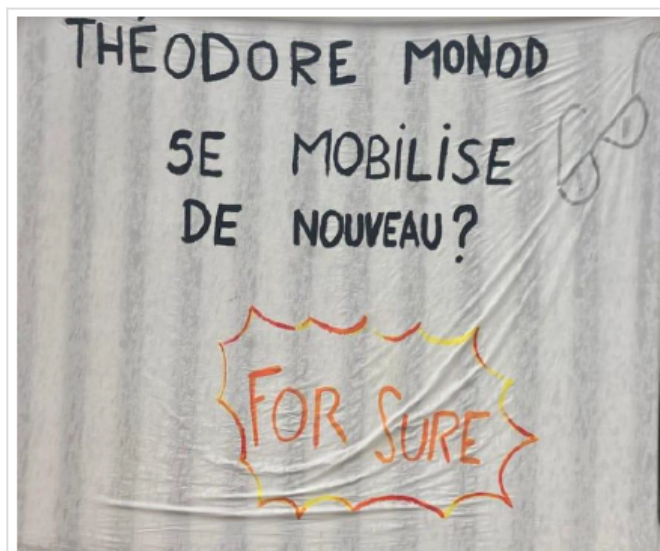 THÉODORE MONOD
SE MOBILISE
DE NOUVEAU?
FOR SURE